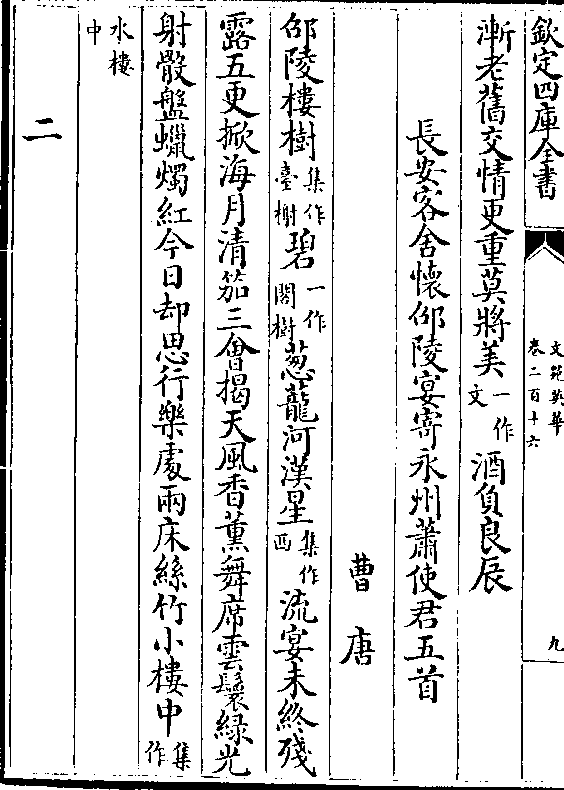 欽定四庫全書
文苑英華
卷二百十六
九
漸老舊交情更重莫將美一作文酒負良辰
長安客舍懷邵陵宴寄永州蕭使君五首
曹唐
邵陵樓樹集作臺榭碧一作閣樹葱蘢河漢星集作西流宴未終殘
露五更掀海月清笳三會揭天風香薰舞席雲鬟綠光
射骰盤蠟燭紅今日却思行樂處兩床絲竹小樓中集作
水樓中
二